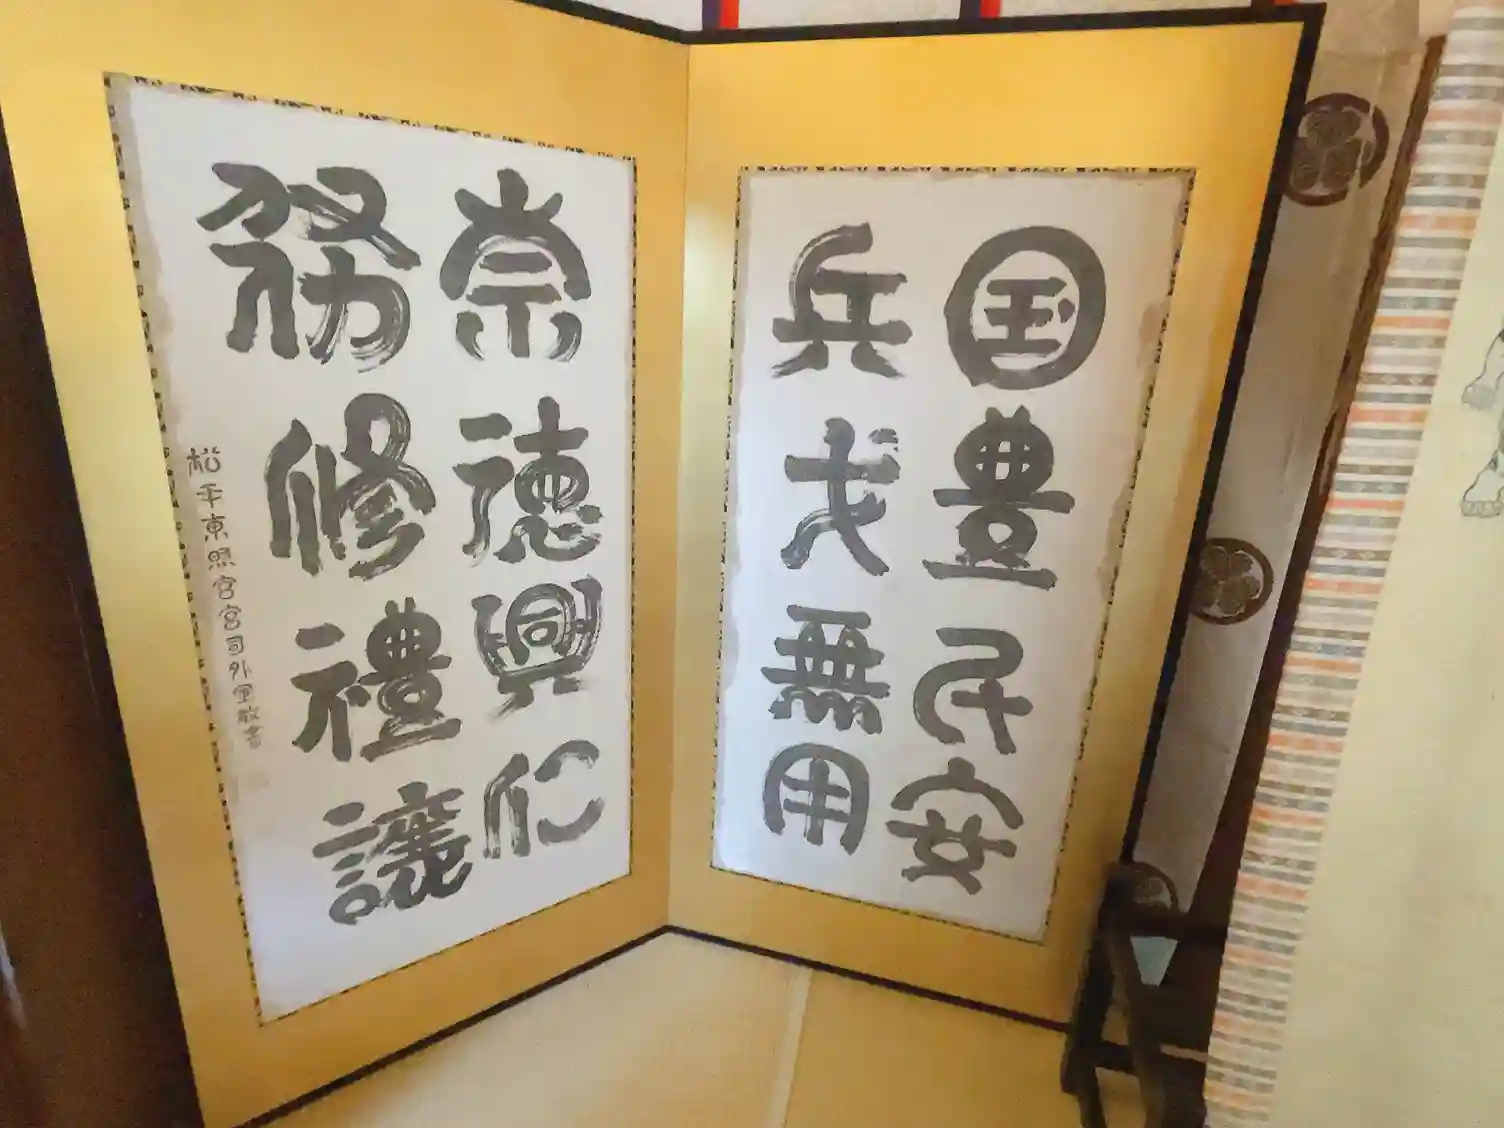 国豊民安
兵戈無用
崇徳興仁
務修禮讓
松平東照宮宮司外室敬書